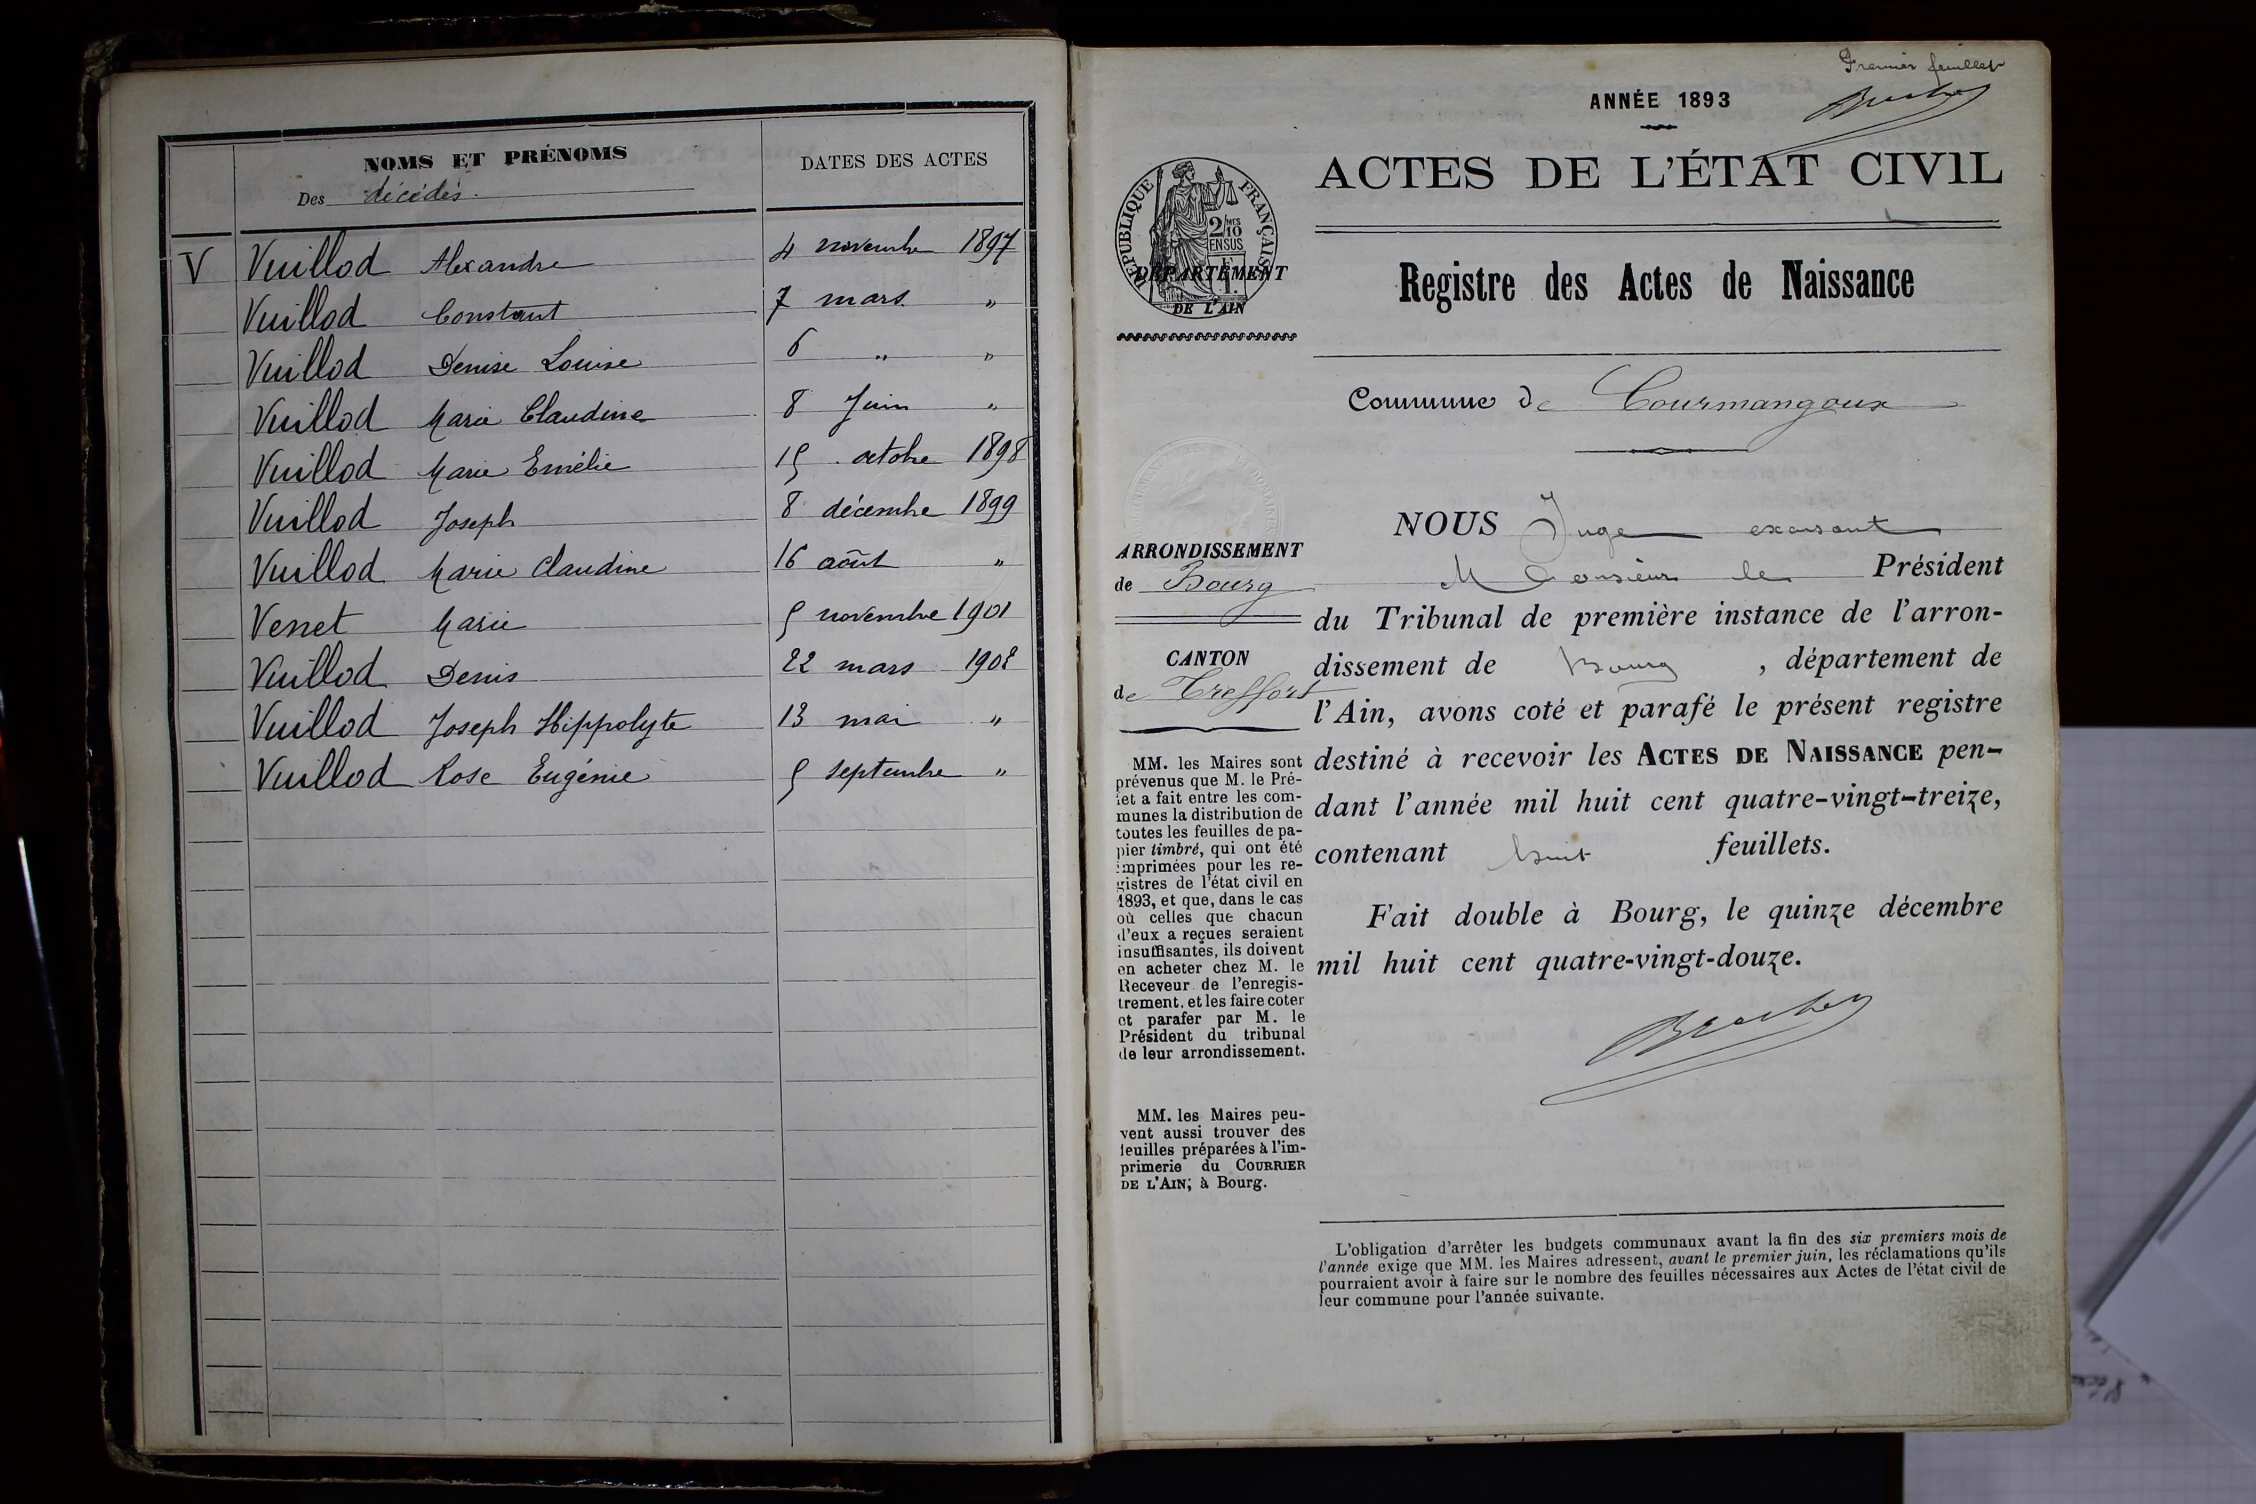 NOMS ET PRÉNOMS
Des décédés.
DATES DES ACTES
V Vuillod Alexandre 4 novembre 1897
Vuillod Constant 7 mars "
Vuillod Denise Louise 6 " "
Vuillod Marie Claudine 8 Juin "
Vuillod Marie Emélie 15 octobre 1898
Vuillod Joseph 8 décembre 1899
Vuillod Marie Claudine 16 août "
Venet Marie 5 novembre 1901
Vuillod Denis 22 mars 1902
Vuillod Joseph Hippolyte 13 mai "
Vuillod Rose Eugénie 5 septembre "
Premier feuillet
ANNÉE 1893
ACTES DE L'ÉTAT CIVIL
RÉPUBLIQUE FRANÇAISE
2/10
EN SUS
DÉPARTEMENT
DE L'AIN
Registre des Actes de Naissance
Commune de Courmangoux
ARRONDISSEMENT
de Bourg
CANTON
de Treffort
MM. les Maires sont
prévenus que M. le Pré-
fet a fait entre les com-
munes la distribution de
toutes les feuilles de pa-
pier timbré, qui ont été
imprimées pour les re-
gistres de l'état civil en
1893, et que, dans le cas
où celles que chacun
d'eux a reçues seraient
insuffisantes, ils doivent
en acheter chez M. le
Receveur de l'enregis-
trement, et les faire coter
et parafer par M. le
Président du tribunal
de leur arrondissement.
MM. les Maires peu-
vent aussi trouver des
feuilles préparées à l'im-
primerie du COURRIER
DE L'AIN, à Bourg.
NOUS Juge
Monsieur le Président
du Tribunal de première instance de l'arron-
dissement de Bourg, département de
l'Ain, avons coté et parafé le présent registre
destiné à recevoir les ACTES DE NAISSANCE pen-
dant l'année mil huit cent quatre-vingt-treize,
contenant huit feuillets.
Fait double à Bourg, le quinze décembre
mil huit cent quatre-vingt-douze.
L'obligation d'arrêter les budgets communaux avant la fin des six premiers mois de
l'année exige que MM. les Maires adressent, avant le premier juin, les réclamations qu'ils
pourraient avoir à faire sur le nombre des feuilles nécessaires aux Actes de l'état civil de
leur commune pour l'année suivante.